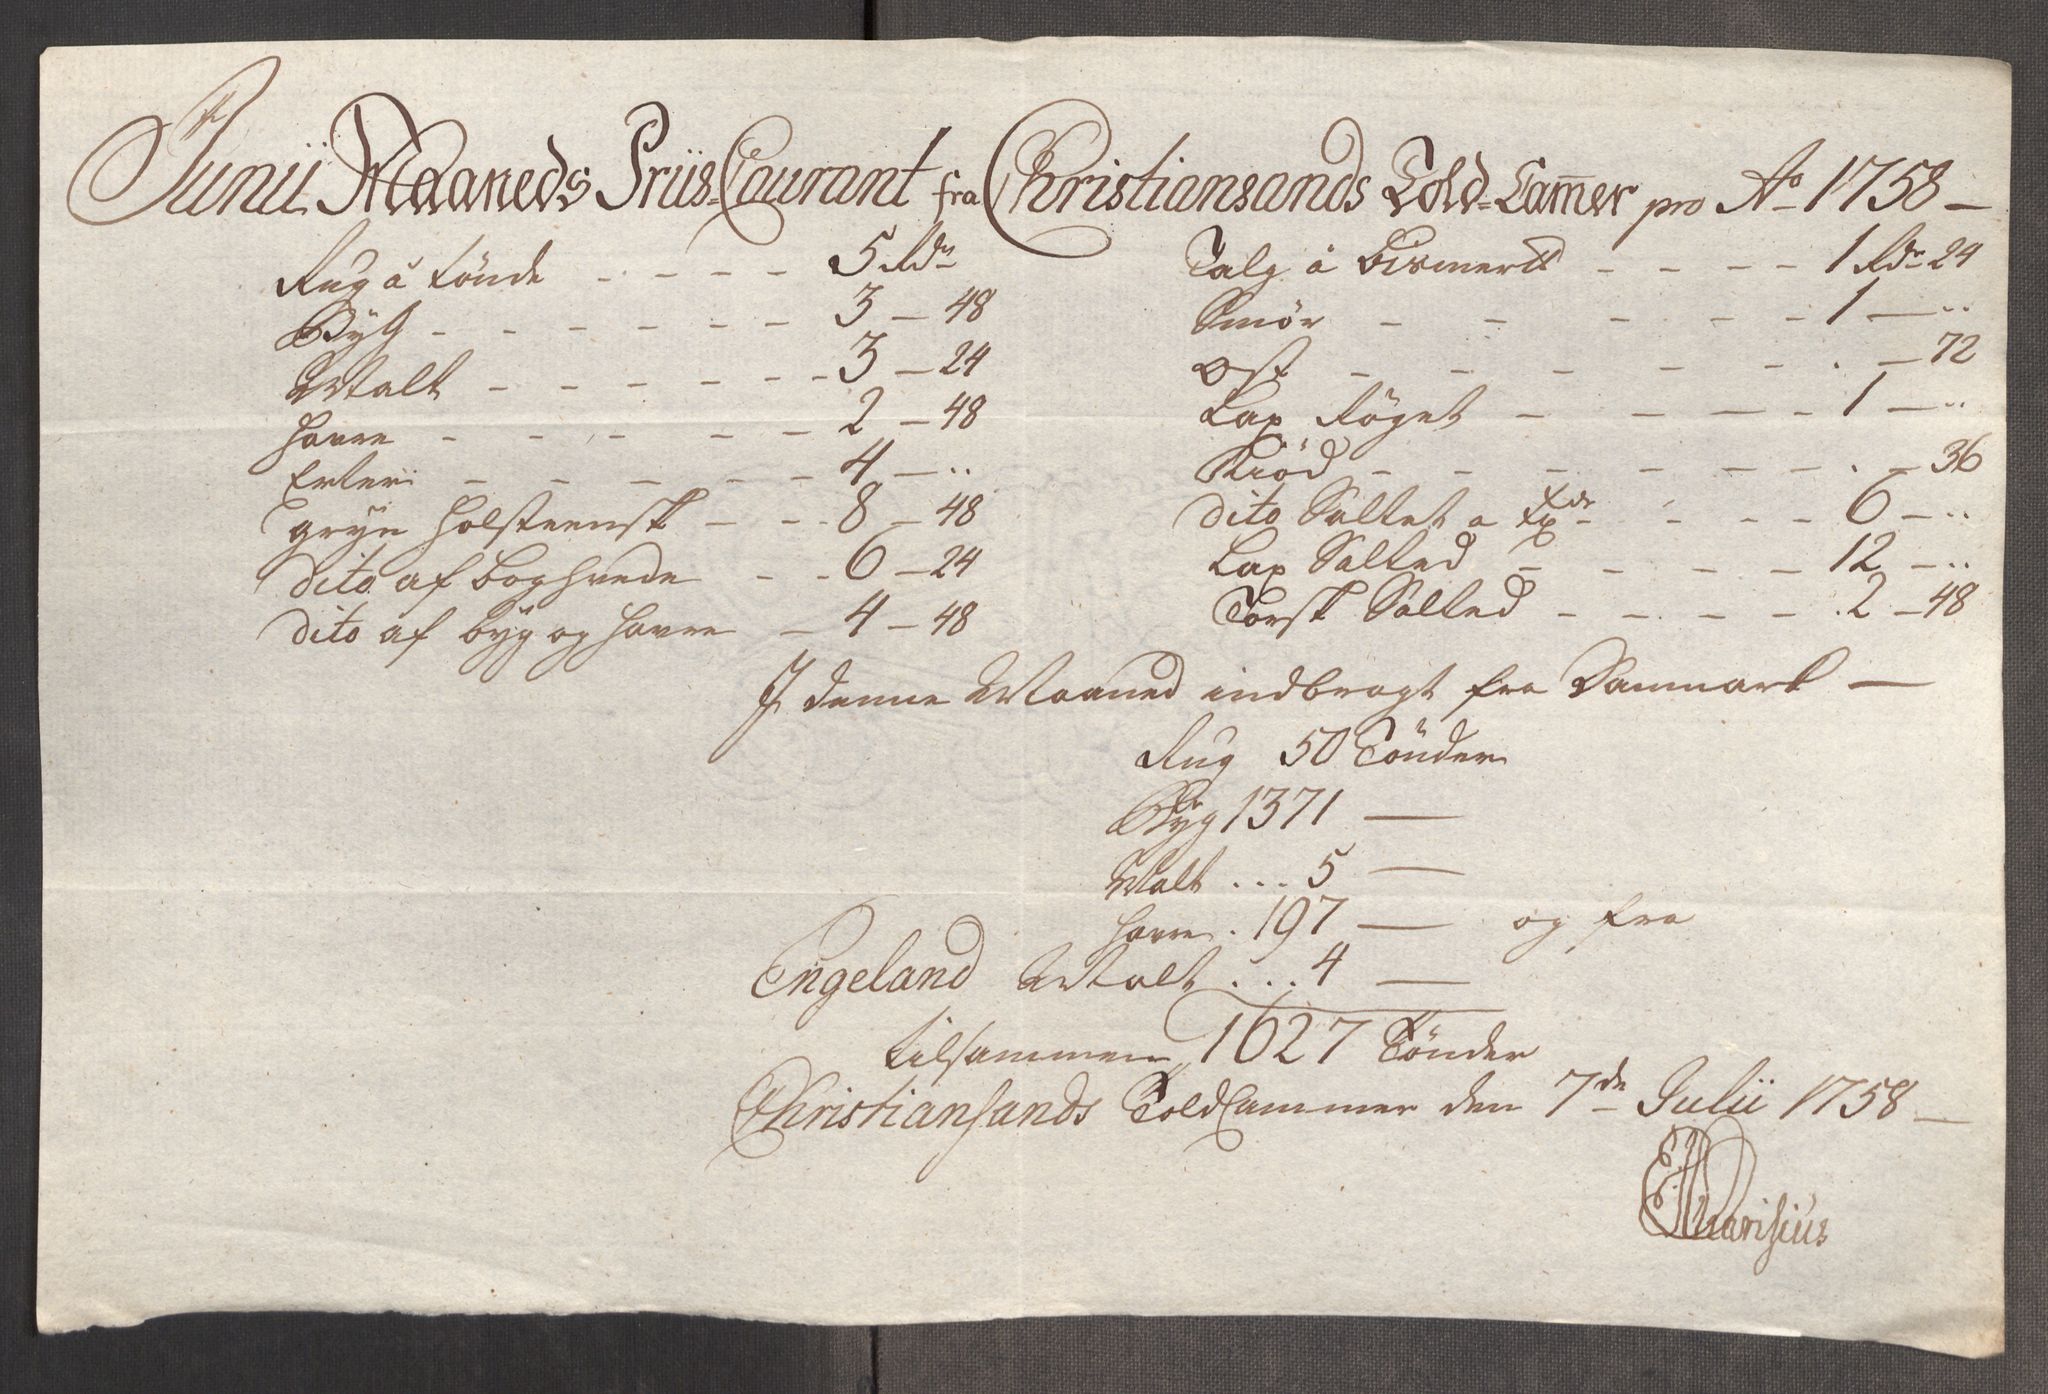 Junii Maaneds Priis-Courant fra Christiansands Told-Cam̅er pro Ao 1758 —
Rug â Tönde - - - - 5 Rdr
Byg - - - - - - - 3 — 48
Malt - - - - - - - 3 — 24
Havre - - - - - 2 — 48
Erter - - - - - 4 — ..
Gryn Holsteensk - - - 8 — 48
Dito af Boghvede - - 6 — 24
Dito af Byg og Havre — 4 — 48
Talg â Bismer℔ - - - - 1 Rdr 24
Smör - - - - - 1 — ..
Ost - - - - - - . — 72
Lax Röget - - - - 1 — ..
Kiöd - - - - - - . — 36
Dito Saltet a - - - - 6 — ..
Lax Salted - - - - 12 — ..
Torsk Salted - - - - - 2 — 48
I denne Maaned indbragt fra Danmark —
Rug 50 Tönder
Byg 1371 —
Malt ... 5 —
Havre . 197 — og fra
Engeland Malt ... 4 —
tilsammen 1627 Tönder
Christiansands ToldCammer den 7de Julii 1758 —